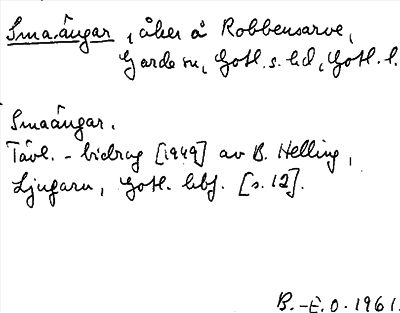 Smaängar, åker å Robbensarve,
Garde sn, Gotl. s. hd, Gotl. l.
Smaängar.
Tävl.-bidrag [1949] av B. Helling,
Ljugarn, Gotl. hbf. [s. 12].
B.-E.O. 1961.